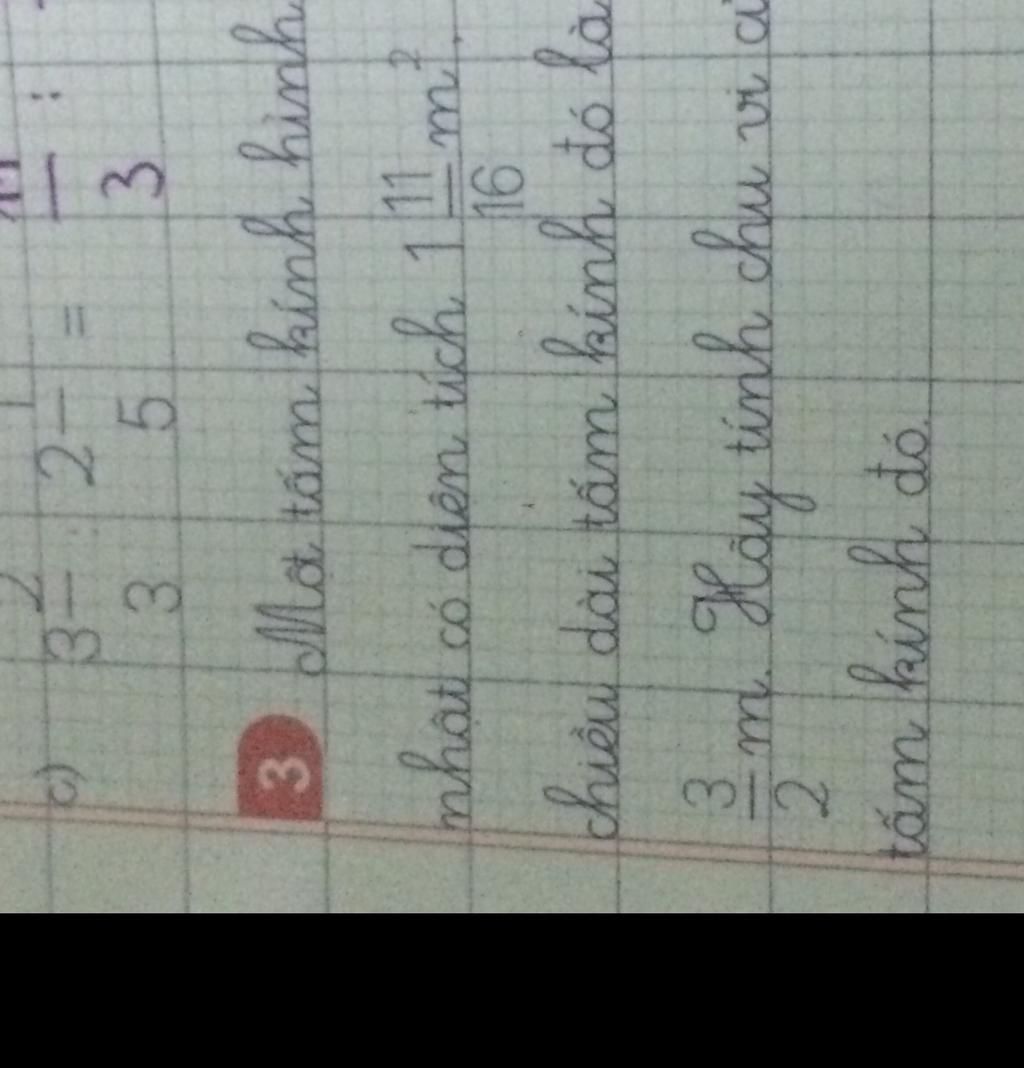 c) 3 2/3 : 2 1/5 = 11/3 :
3 Một tấm kính hình
nhật có diện tích 1 11/16 m²,
chiều dài tấm kính đó là
3/2 m. Hãy tính chu vi củ
tấm kính đó.